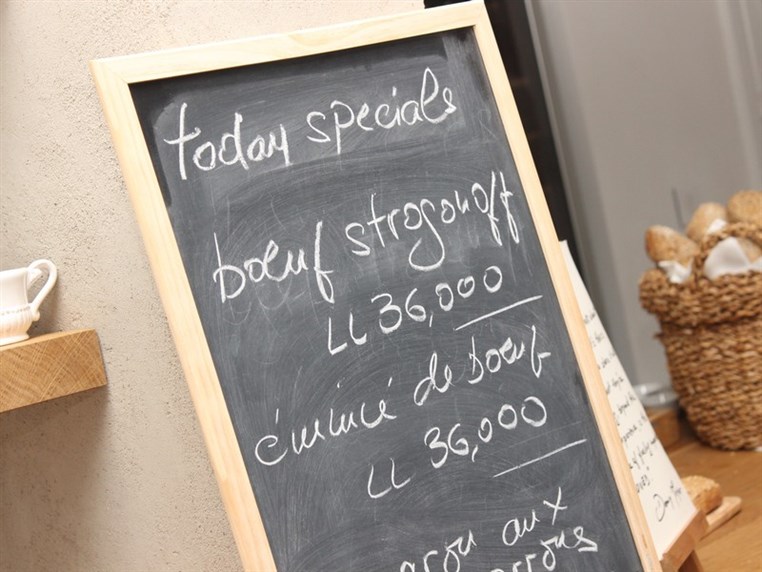 today specials
bœuf strogonoff
LL 36,000
émincé de bœuf
LL 36,000
aux